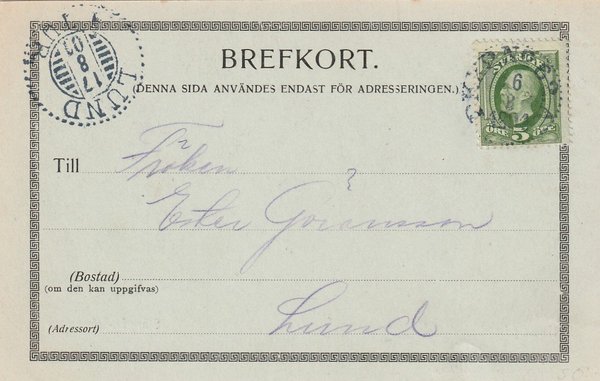 BREFKORT.
(DENNA SIDA ANVÄNDES ENDAST FÖR ADRESSERINGEN.)
SVERIGE
ÖRE 5 ÖRE
LUND
17
8
01
6
8
Till Fröken
Ester Göransson
(Bostad)
(om den kan uppgifvas)
(Adressort) Lund